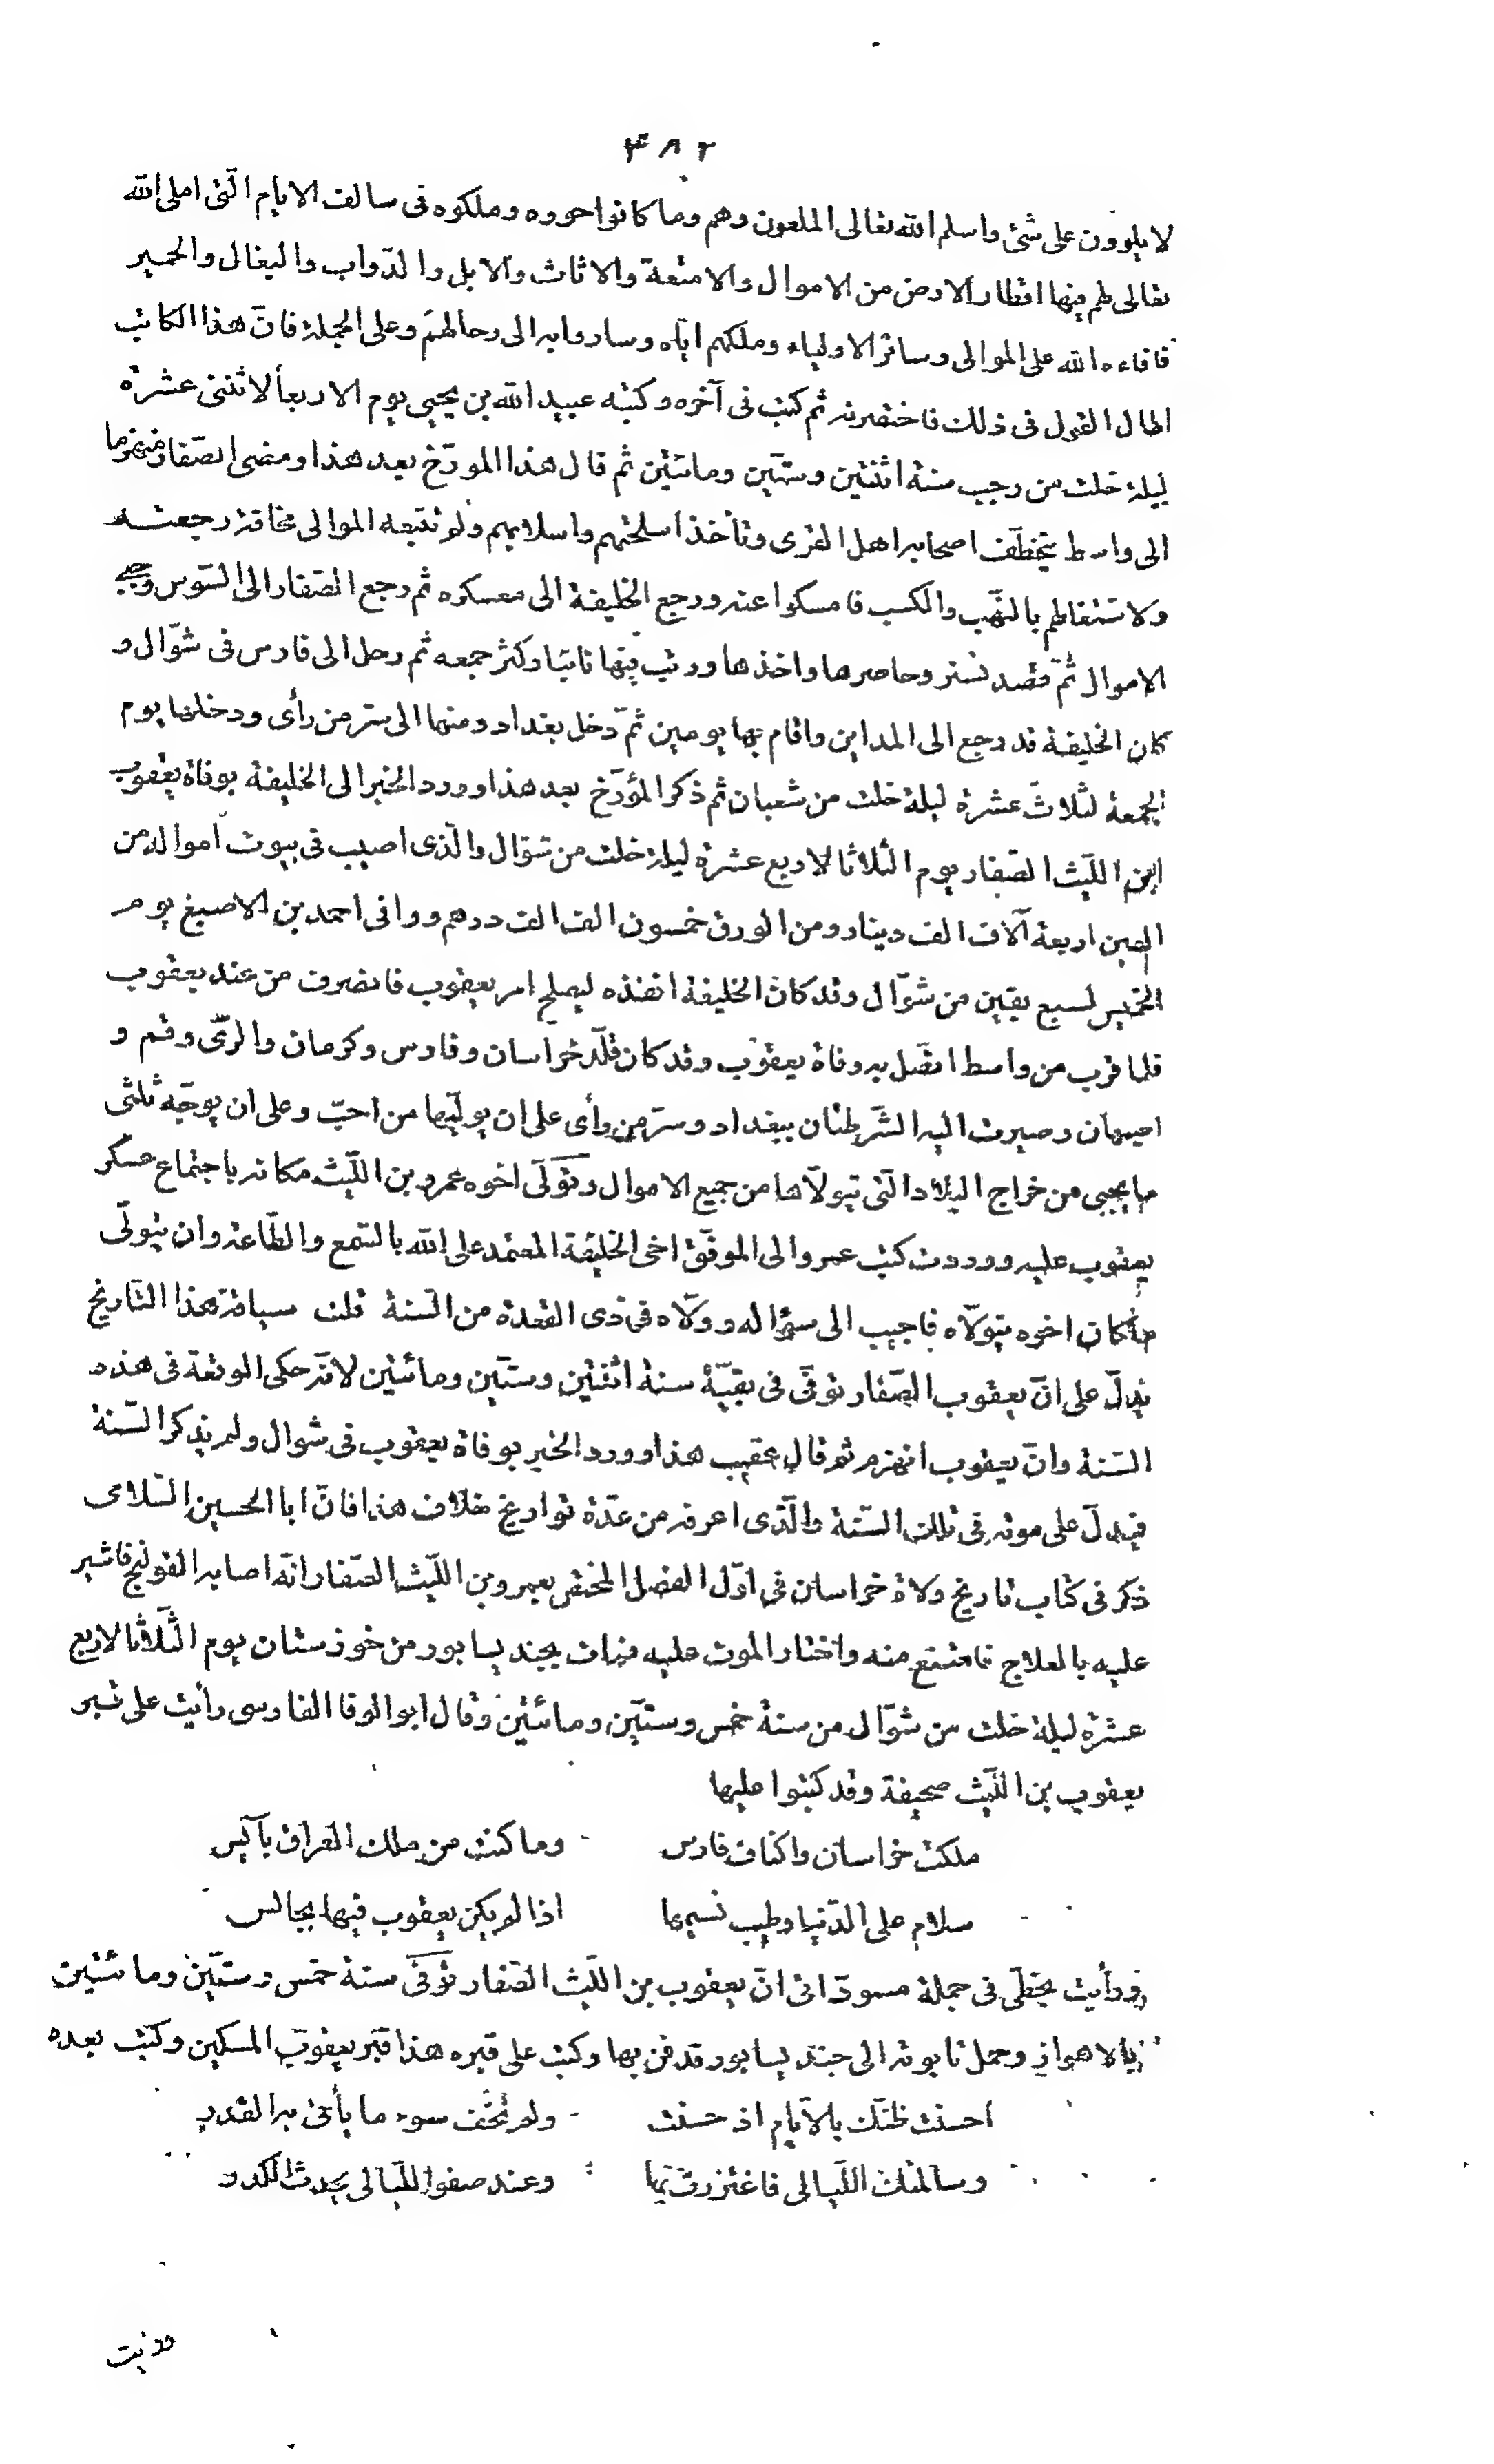 ٣٨٢
لا يلوون على شئ واسلم الله تعالى الملعون وهم وما كانوا حووه وملكوه فى سالف الايام الّتى املى الله
تعالى لهم فيها اقطار الارض من الاموال والامتعة والاثاث والابل والدّواب والبغال والحمير
فافاءه الله على الموالى وسائر الاولياء وملكهم ايّاه وساروا به الى رحالهم وعلى الجملة فانّ هذا الكاتب
اطال القول فى ذلك فاختصرته ثم كتب فى آخره وكتبه عبيد الله بن يحيى يوم الاربعا لاثنتى عشرة
ليلة خلت من رجب سنة اثنتين وستّين ومائتين ثم قال هذا المورّخ بعد هذا ومضى الصّفار منهزما
الى واسط يتخطّف اصحابه اهل القرى وتأخذ اسلحتهم واسلابهم ولم تتبعه الموالى مخافة رجعته
ولاشتغالهم بالنهب والكسب فامسكوا عنه ورجع الخليفة الى معسكره ثم رجع الصّفار الى السّوس وجبى
الاموال ثمّ قصد تستر وحاصرها واخذها ورتب فيها نائبا وكثر جمعه ثم رحل الى فارس فى شوّال و
كان الخليفة قد رجع الى المداين واقام بها يومين ثمّ دخل بغداد ومنها الى سرّ من رأى ودخلها يوم
الجمعة لثلاث عشرة ليلة خلت من شعبان ثم ذكر المؤرّخ بعد هذا وورد الخبر الى الخليفة بوفاة يعقوب
ابن اللّيث الصّفار يوم الثلاثا لاربع عشرة ليلة خلت من شوّال والّذى اصيب فى بيوت امواله من
العين اربعة آلاف الف دينار ومن الورق خمسون الف الف درهم ووافى احمد بن الاصبغ يوم
الخميس لسبع بقين من شوّال وقد كان الخليفة انفذه ليصلح امر يعقوب فانصرف من عند يعقوب
فلما قرب من واسط اتصّل به وفاة يعقوب وقد كان قلّد خراسان وفارس وكرمان والرىّ وقم و
اصبهان وصيرت اليه الشّرطتان ببغداد وسرّ من رأى على ان يولّيها من احبّ وعلى ان يوجّه ثلثى
ما يجبى من خراج البلاد الّتى تيولّاها من جميع الاموال وتولّى اخوه عمرو بن اللّيث مكانه باجتماع عسكر
يعقوب عليه ووردت كتب عمرو الى الموفّق اخى الخليفة المعتمد على الله بالسّمع والطّاعة وان يتولّى
ما كان اخوه يتولّاه فاجيب الى سؤاله وولّاه فى ذى القعدة من السّنة قلت سياقة هذا التّاريخ
يدلّ على انّ يعقوب الصّفار توفّى فى بقيّة سنة اثنتين وستّين ومائتين لانّه حكى الوقعة فى هذه
السّنة وانّ يعقوب انهزم ثم قال عقيب هذا وورد الخبر بوفاة يعقوب فى شوال ولم يذكر السّنة
فيدلّ على موته فى تلك السّنة والّذى اعرفه من عدّة تواريخ خلاف هذا فانّ ابا الحسين السّلامى
ذكر فى كتاب تاريخ ولاة خراسان فى اوّل الفصل المختص بعمرو بن اللّيث الصّفار انّه اصابه القولنج فاشير
عليه بالعلاج فامتنع منه واختار الموت عليه فمات بجند يسابور من خوزستان يوم الثّلاثا لاربع
عشرة ليلة خلت من شوّال من سنة خمس وستّين ومائتين وقال ابو الوفا الفارسى رأيت على قبر
يعقوب بن اللّيث صحيفة وقد كتبوا عليها
ملكت خراسان واكناف فارس وما كنت من ملك العراق بآيس
سلام على الدّنيا وطيب نسيمها اذا لم يكن يعقوب فيها بجالس
ورأيت بخطّى فى جملة مسودّاتى انّ يعقوب بن اللّيث الصّفار توفّى سنة خمس وستّين ومائتين
بالاهواز وحمل تابوته الى جند يسابور قدفن بها وكتب على قبره هذا قبر يعقوب المسكين وكتب بعده
احسنت ظنّك بالايّام اذ حسنت ولم تخف سوء ما يأتى به القدر
وسالمتك اللّيالى فاغتررت بها وعند صفو اللّيالى يحدث الكدر